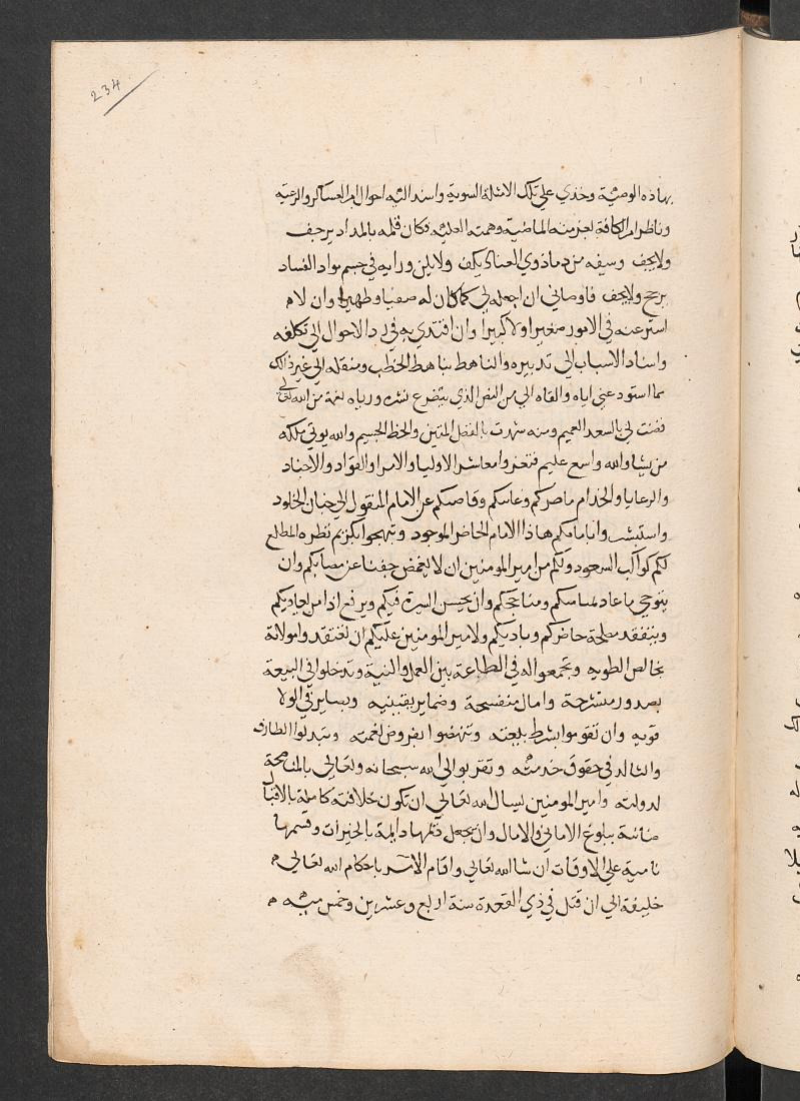 234
بهاذه الوصية وحذي علي تلك الامثلة السوية واسند اليه احوال ام العساكر والرعية
وناظ امر الكافة لعزمته الماضية وهمته العلية فكان قلمه بالمداد يرجف
ولا يجف وسيفه من دماء ذوي العناد يكف ولا يكف ورايه في حسم مواد الفساد
يرجح ولا يخف فاوصاني ان اجعله لي كما كان له صفيا وظهيرا وان لا
استر عنه في الامور صغيرا ولا كبيرا وان اقتدي به في رد الاحوال الي تكلفه
واسناد الاسباب الي تدبيره والناهط بناهط الخطب ومنقله الي غير ذالك
مما استودعني اياه والقاه الي من النص الذي يتضوع نشره ورياه نعمة من الله تعالي
قضت لي بالسعد العميم ومنه شهدت بالفضل المتين والحظ الجسيم والله يوتي ملكه
من يشا والله واسع عليم فتعزوا معاشر الاوليا والامرا والقواد والاجناد
والرعايا والخدام حاضركم وغايبكم وقاصيكم عن الامام المنقول الي جنان الخلود
واستبشروا بامامكم هاذا الامام الحاضر الموجود وتبهجوا بكريم نظره المطالع
لكم كواكب السعود ولكم من امير المومنين ان لا يغمض جفنا عن مصابكم وان
يتوخي ما عاد لميامنكم ومناجحكم وان يحسن السيرة فيكم ويرفع اذا من يعاديكم
ويتفقد مصلحة حاضركم وباديكم ولامير المومنين عليكم ان تعتقدوا موالاته
بخالص الطوية وتجمعوا له في الطاعة بين العمل والنية وتدخلوا في البيعة
بصدور منشرحة وامال منفسحة وضماير يقينية وبصاير في الولا
قوية وان تقوموا بشرط بيعته وتنهضوا بفروض نعمته وتبذلوا الطارف
والتالد في حقوق خدمته وتتقربوا الي الله سبحانه وتعالي بالمناصحة
لدولته وامير المومنين يسال الله تعالي ان تكون خلافته كاملة بالاقبال
ضامنة ببلوغ الاماني والامال وان يجعل ديمها دايمة بالخيرات وقسمها
نامية علي الاوقات ان شا الله تعالي واقام الآمر باحكام الله تعالي
خليفة الي ان قتل في ذي القعدة سنة اربع وعشرين وخمس ميه